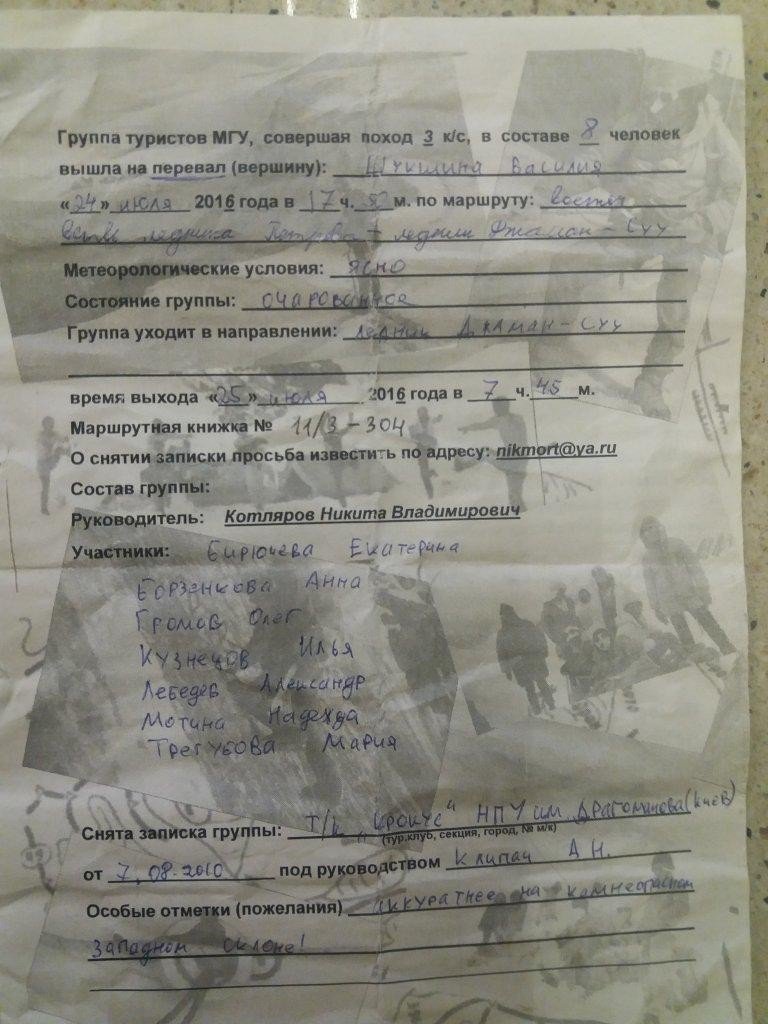 Группа туристов МГУ, совершая поход 3 к/с, в составе 8 человек
вышла на перевал (вершину): Шукшина Василия
«24» июля 2016 года в 17 ч. м. по маршруту:
ледника Петрова – ледник Джаман-Суу
Метеорологические условия: ясно
Состояние группы: очарованное
Группа уходит в направлении: ледник Джаман-Суу
время выхода «25» июля 2016 года в 7 ч. 45 м.
Маршрутная книжка № 11/3-304
О снятии записки просьба известить по адресу: nikmort@ya.ru
Состав группы:
Руководитель: Котляров Никита Владимирович
Участники: Бирючева Екатерина
Борзенкова Анна
Громов Олег
Кузнецов Илья
Лебедев Александр
Мотина Надежда
Трегубова Мария
Снята записка группы: т/к "Крокус" НПУ им. Драгоманова (Киев)
(тур.клуб, секция, город, № м/к)
от 7.08.2010 под руководством А Н.
Особые отметки (пожелания) аккуратнее на камнеопасном
западном склоне!